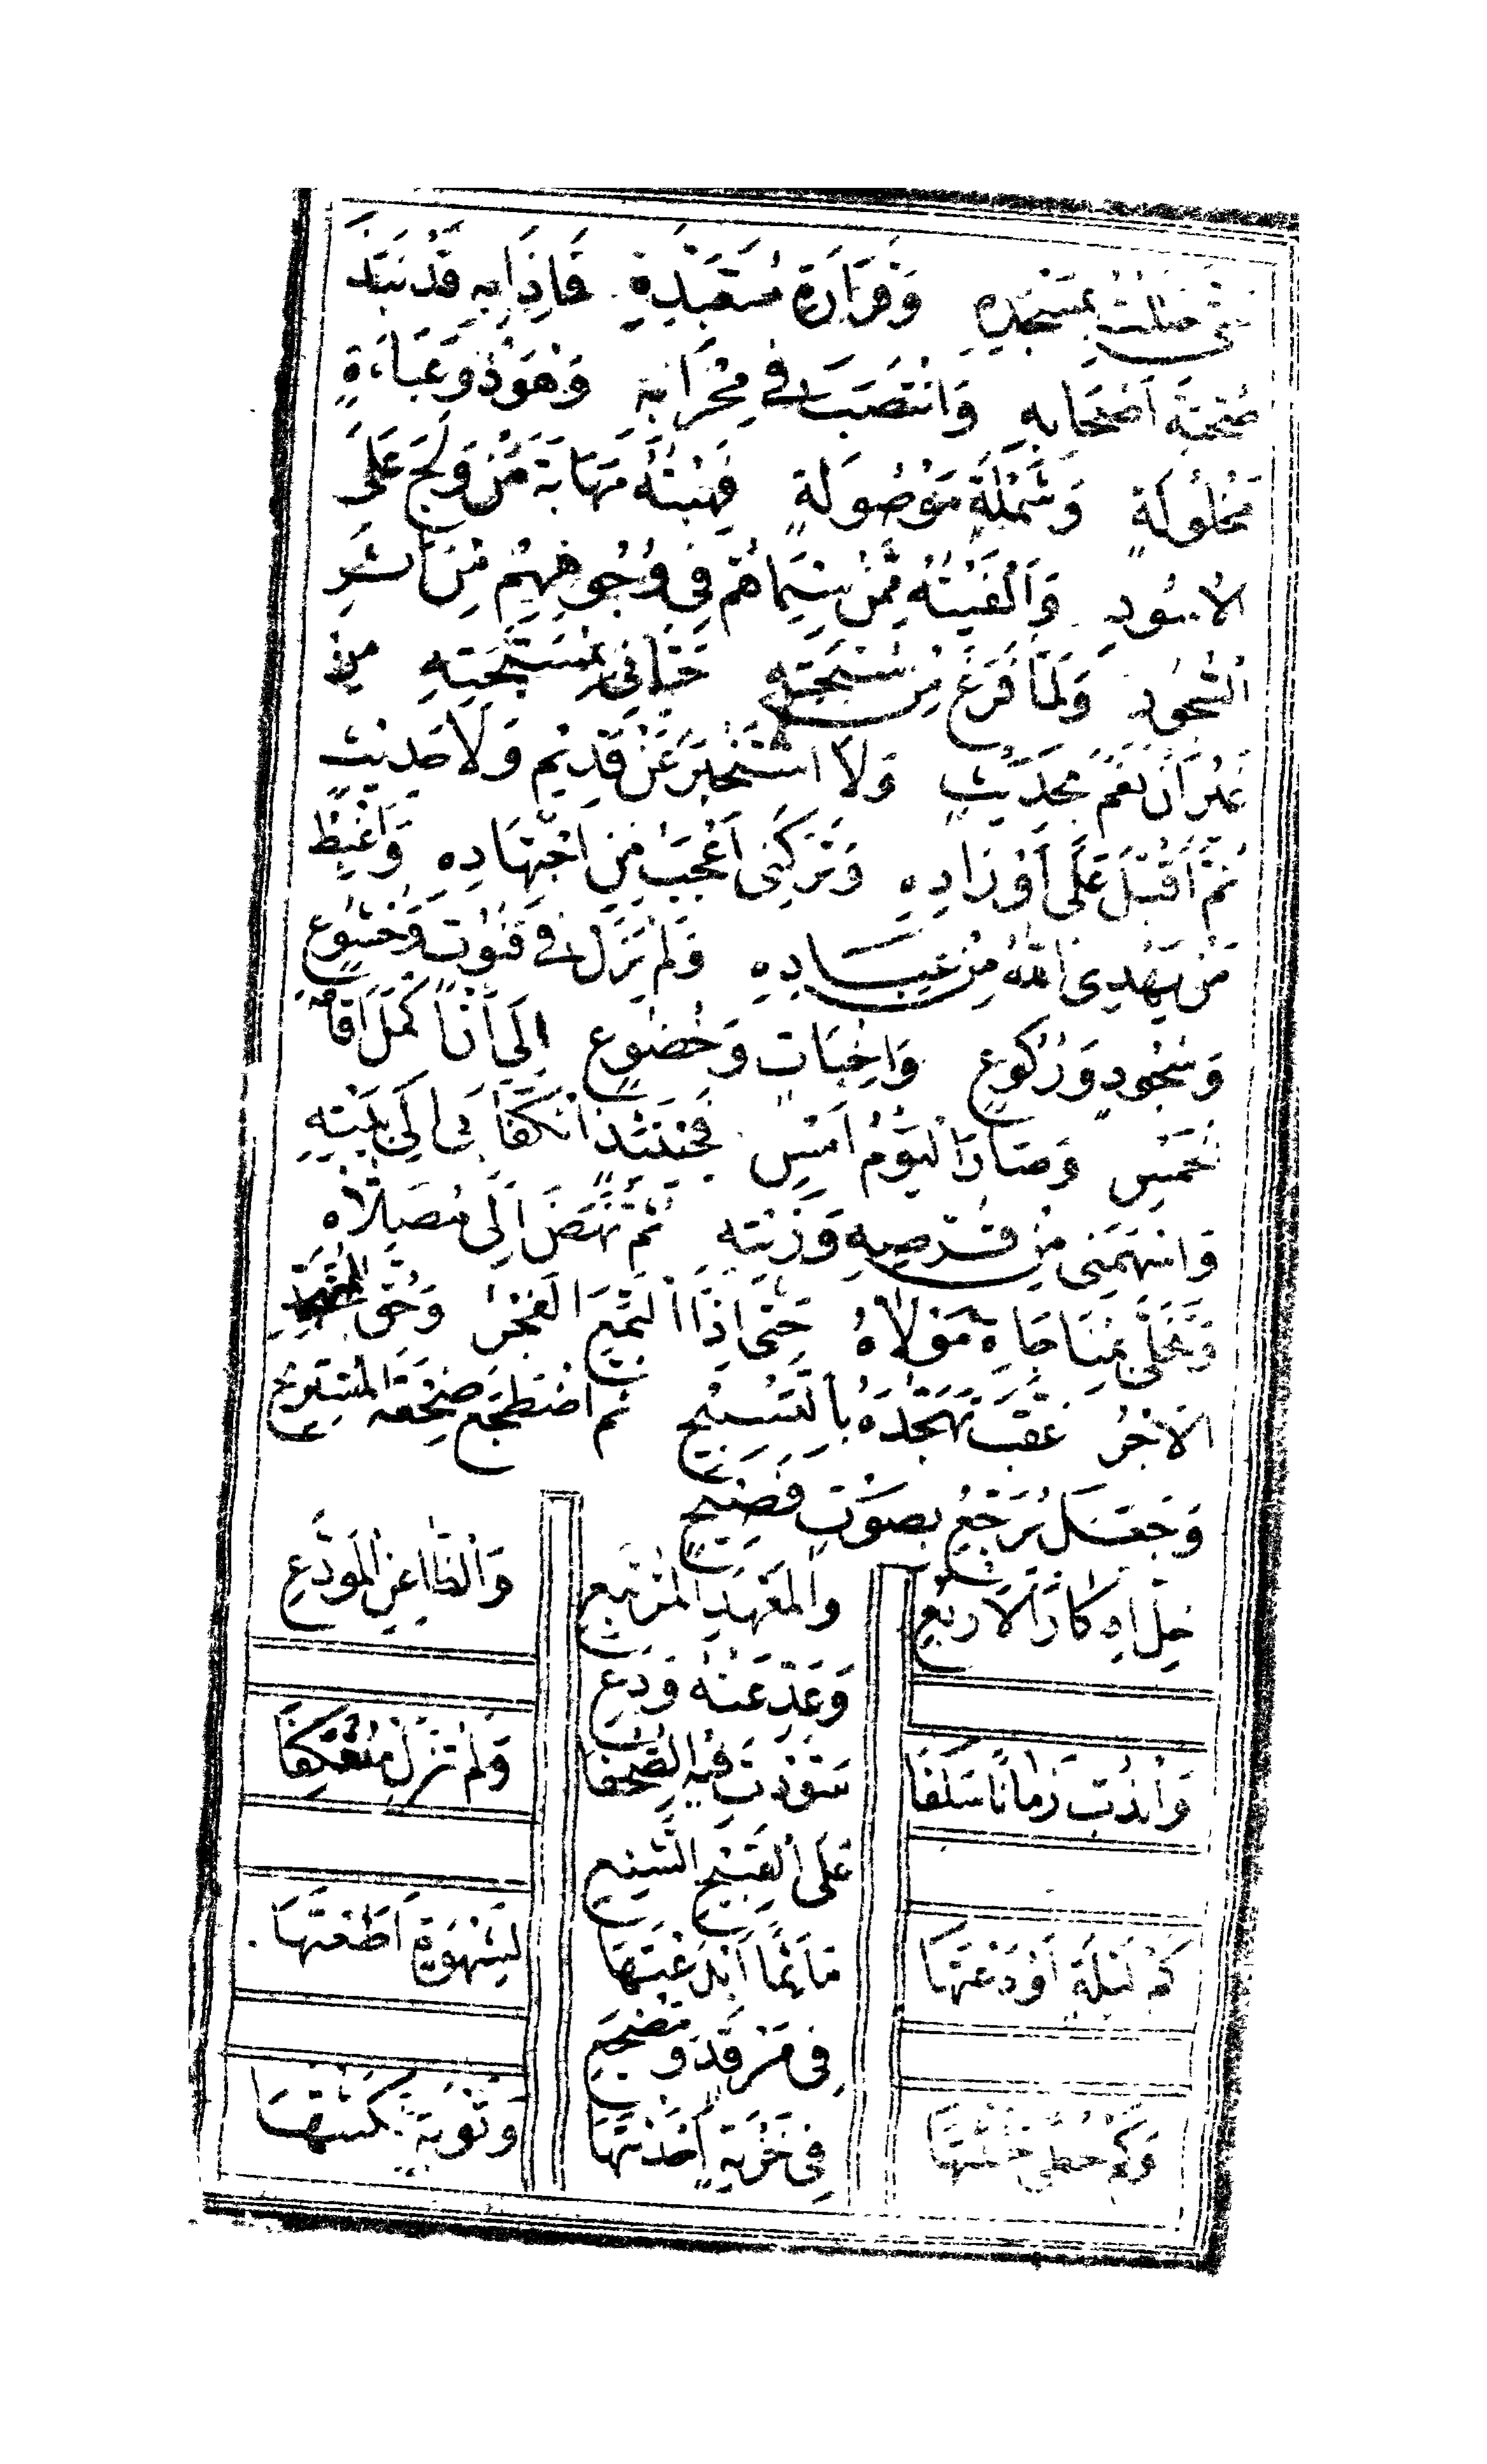 حَتَّى حَلَلْتُ بِمَسْجِدِهِ وَقَرَارَةِ مُتَعَبَّدِهِ فَاِذَا بِهِ قَدْ نَبَذَ
صُحْبَةَ اَصْحَابِهِ وَانْتَصَبَ فِي مِحْرَابِهِ وَهُوَ ذُو عَبَاءَةٍ
مَخْلُولَةٍ وَشَمْلَةٍ مَوْصُولَةٍ فَهِبْتُهُ مَهَابَةَ مَنْ وَلَجَ عَلَى
الاُسُودِ وَاَلْفَيْتُهُ مِمَّنْ سِيمَاهُمْ فِي وُجُوهِهِمْ مِنْ اَثَرِ
السُّجُودِ وَلَمَّا فَرَغَ مِنْ سُبْحَتِهِ حَيَّانِي بِمُسَبِّحَتِهِ مِنْ
غَيْرِ اَنْ نَغَمَ بِحَدِيثٍ وَلَا اسْتَخْبَرَ عَنْ قَدِيمٍ وَلَا حَدِيثٍ
ثُمَّ اَقْبَلَ عَلَى اَوْرَادِهِ وَتَرَكَنِي اَعْجَبُ مِنِ اجْتِهَادِهِ وَاَغْبِطُ
مَنْ يَهْدِي اللهُ مِنْ عِبَادِهِ وَلَمْ يَزَلْ فِي قُنُوتٍ وَخُشُوعٍ
وَسُجُودٍ وَرُكُوعٍ وَاِخْبَاتٍ وَخُضُوعٍ اِلَى اَنْ اَكْمَلَ اِقَامَةَ
خَمْسٍ وَصَارَ اليَوْمُ اَمْسِ فَحِينَئِذٍ انْكَفَأَ بِي اِلَى بَيْتِهِ
وَاسْهَمَنِي مِنْ قُرْصِهِ وَزَيْتِهِ ثُمَّ نَهَضَ اِلَى مُصَلَّاهُ
وَتَخَلَّى بِمُنَاجَاةِ مَوْلَاهُ حَتَّى اِذَا الْتَمَعَ الفَجْرُ وَحُقَّ للمتهجد
الاَجْرُ عَقَّبَ تَهَجُّدَهُ بِالتَّسْبِيحِ ثُمَّ اضْطَجَعَ ضِجْعَةَ المُسْتَرِيحِ
وَجَعَلَ يُرَجِّعُ بِصَوْتٍ فَصِيحٍ
خَلِّ ادِّكَارَ الاَرْبُعِ وَالمَعْهَدِ المُرْتَبَعِ وَالظَّاعِنِ المُوَدِّعِ
وَعَدِّ عَنْهُ وَدَعِ
وَانْدُبْ زَمَانًا سَلَفَا سَوَّدْتَ فِيهِ الصُّحُفَا وَلَمْ تَزَلْ مُعْتَكِفَا
عَلَى القَبِيحِ الشَّنِعِ
كَمْ لَيْلَةٍ اَوْدَعْتَهَا مَآثِمًا اَبْدَعْتَهَا لِشَهْوَةٍ اَطَعْتَهَا
فِي مَرْقَدٍ وَمَضْجَعِ
وَكَمْ خُطًى حَثَثْتَهَا فِي خَزْيَةٍ اَحْدَثْتَهَا وَتَوْبَةٍ نَكَثْتَهَا